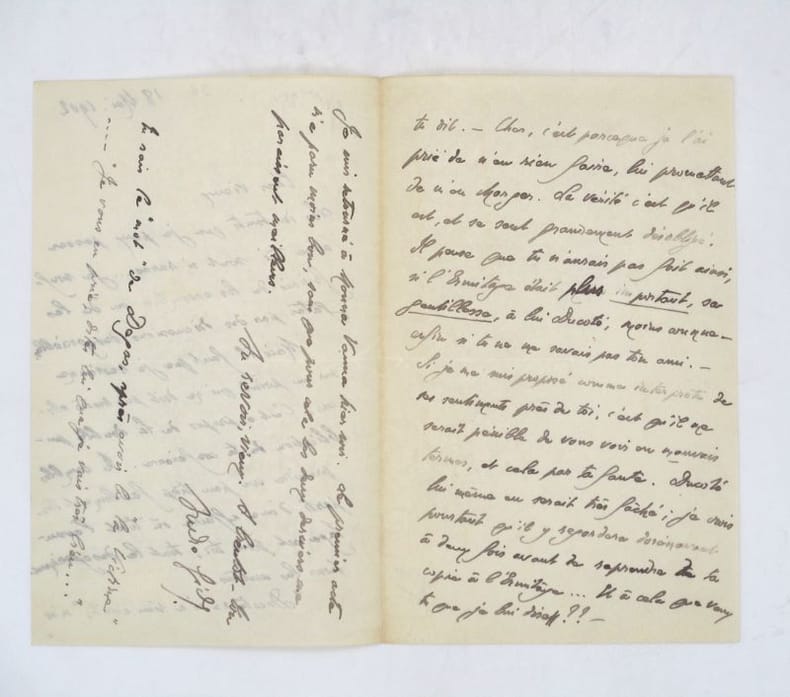 tu dit. — Cher, c'est parceque je l'ai
prié de n'en rien faire, lui promettant
de m'en charger. La vérité c'est qu'il
est, et se sent grandement désobligé.
Il pense que tu n'aurais pas fait ainsi,
si l'Ermitage était plus important, sa
gentillesse, à lui Ducoté, moins connue —
enfin si tu ne me savais pas ton ami. —
Si je me suis proposé comme interprète de
ses sentiments près de toi, c'est qu'il me
serait pénible de vous voir en mauvais
termes, et cela par ta faute. Ducoté
lui même en serait très fâché ; je crois
pourtant qu'il y regardera dorénavant
à deux fois avant de reprendre de ta
copie à l'Ermitage ... Et à cela que veux
tu que je lui dise ?? —
Je suis retourné à Monna Vanna hier soir. Le premier acte
m'a paru moins bon, sans que pour cela les deux derniers me
paraissent meilleurs.
Au revoir, vieux. A bientôt. ton
André Gide.
tu sais le mot "de Degas, après avoir lu la "
.... "Je vous en prie ! dites lui que je vais très bien..."